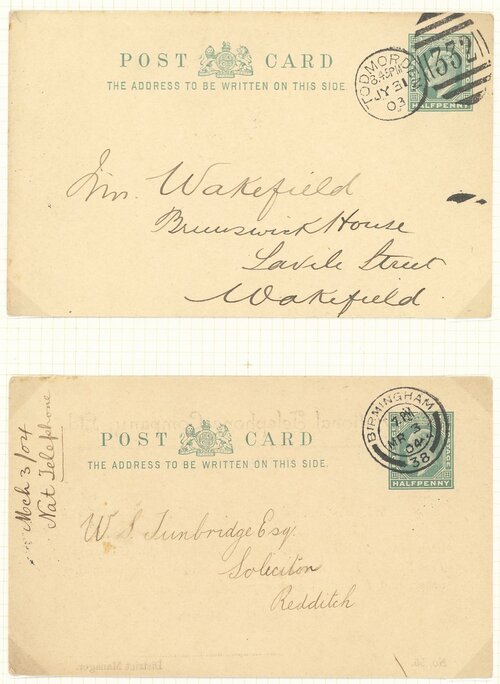 POST CARD
THE ADDRESS TO BE WRITTEN ON THIS SIDE.
TODMORDEN
8.45PM
JY 31
03
332
HALFPENNY
Wakefield
Brunswick House
Savile Street
Wakefield.
BIRMINGHAM
7. PM
MR 3
04
38
POST CARD
THE ADDRESS TO BE WRITTEN ON THIS SIDE.
POSTAGE
HALFPENNY
Mch 3/04
Nat Telephone
W. S. Tunbridge Esq.
Solicitor
Redditch
District Manager.
No. 56.